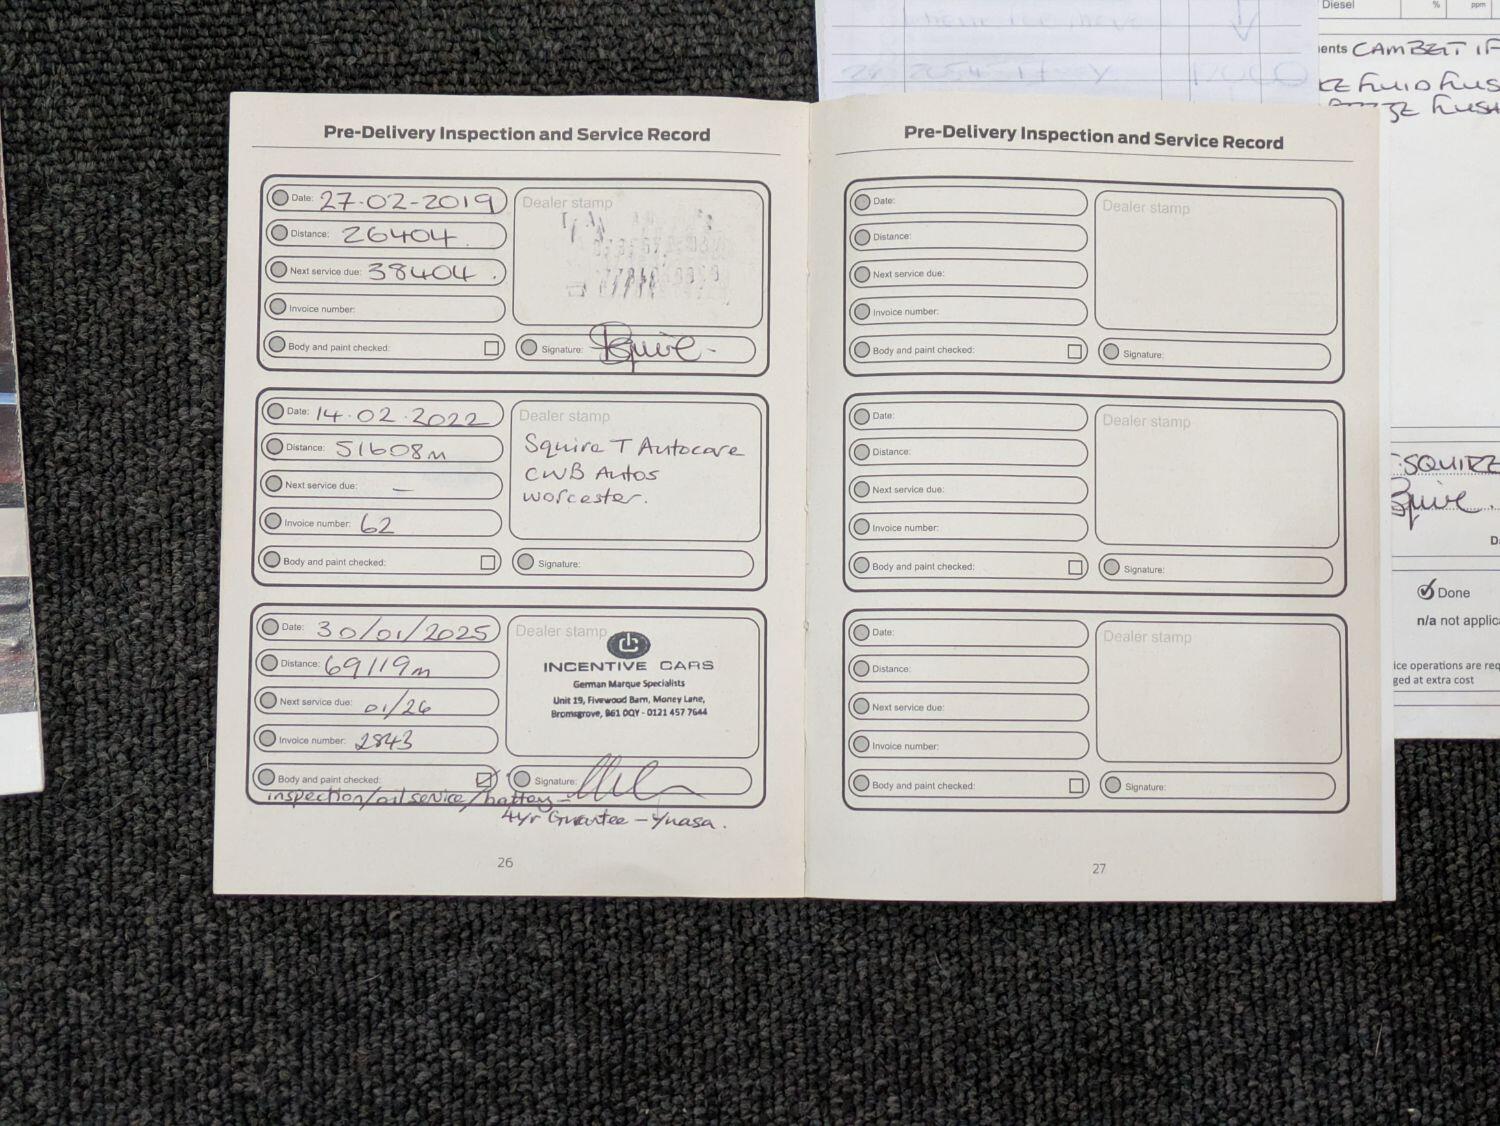 Diesel
%
ppm
CAMBELT
Pre-Delivery Inspection and Service Record
Date: 27-02-2019
Distance: 26404
Next service due: 38404.
Invoice number:
Body and paint checked:
Dealer stamp
Signature: Squire
Date: 14.02.2022
Distance: 51608m
Next service due: —
Invoice number: 62
Body and paint checked:
Dealer stamp
Squire T Autocare
CWB Autos
Worcester.
Signature:
Date: 30/01/2025
Distance: 69119m
Next service due: 01/26
Invoice number: 2843
Body and paint checked:
Dealer stamp
INCENTIVE CARS
German Marque Specialists
Unit 19, Fivewood Barn, Money Lane,
Bromsgrove, B61 0QY - 0121 457 7644
Signature:
inspection/oil service/battery -
4yr Gurantee - Yuasa.
26
Pre-Delivery Inspection and Service Record
Date:
Distance:
Next service due:
Invoice number:
Body and paint checked:
Dealer stamp
Signature:
Date:
Distance:
Next service due:
Invoice number:
Body and paint checked:
Dealer stamp
Signature:
Date:
Distance:
Next service due:
Invoice number:
Body and paint checked:
Dealer stamp
Signature:
27
FLUID
SQUIRE
Squire.
Done
n/a not
operations are
at extra cost